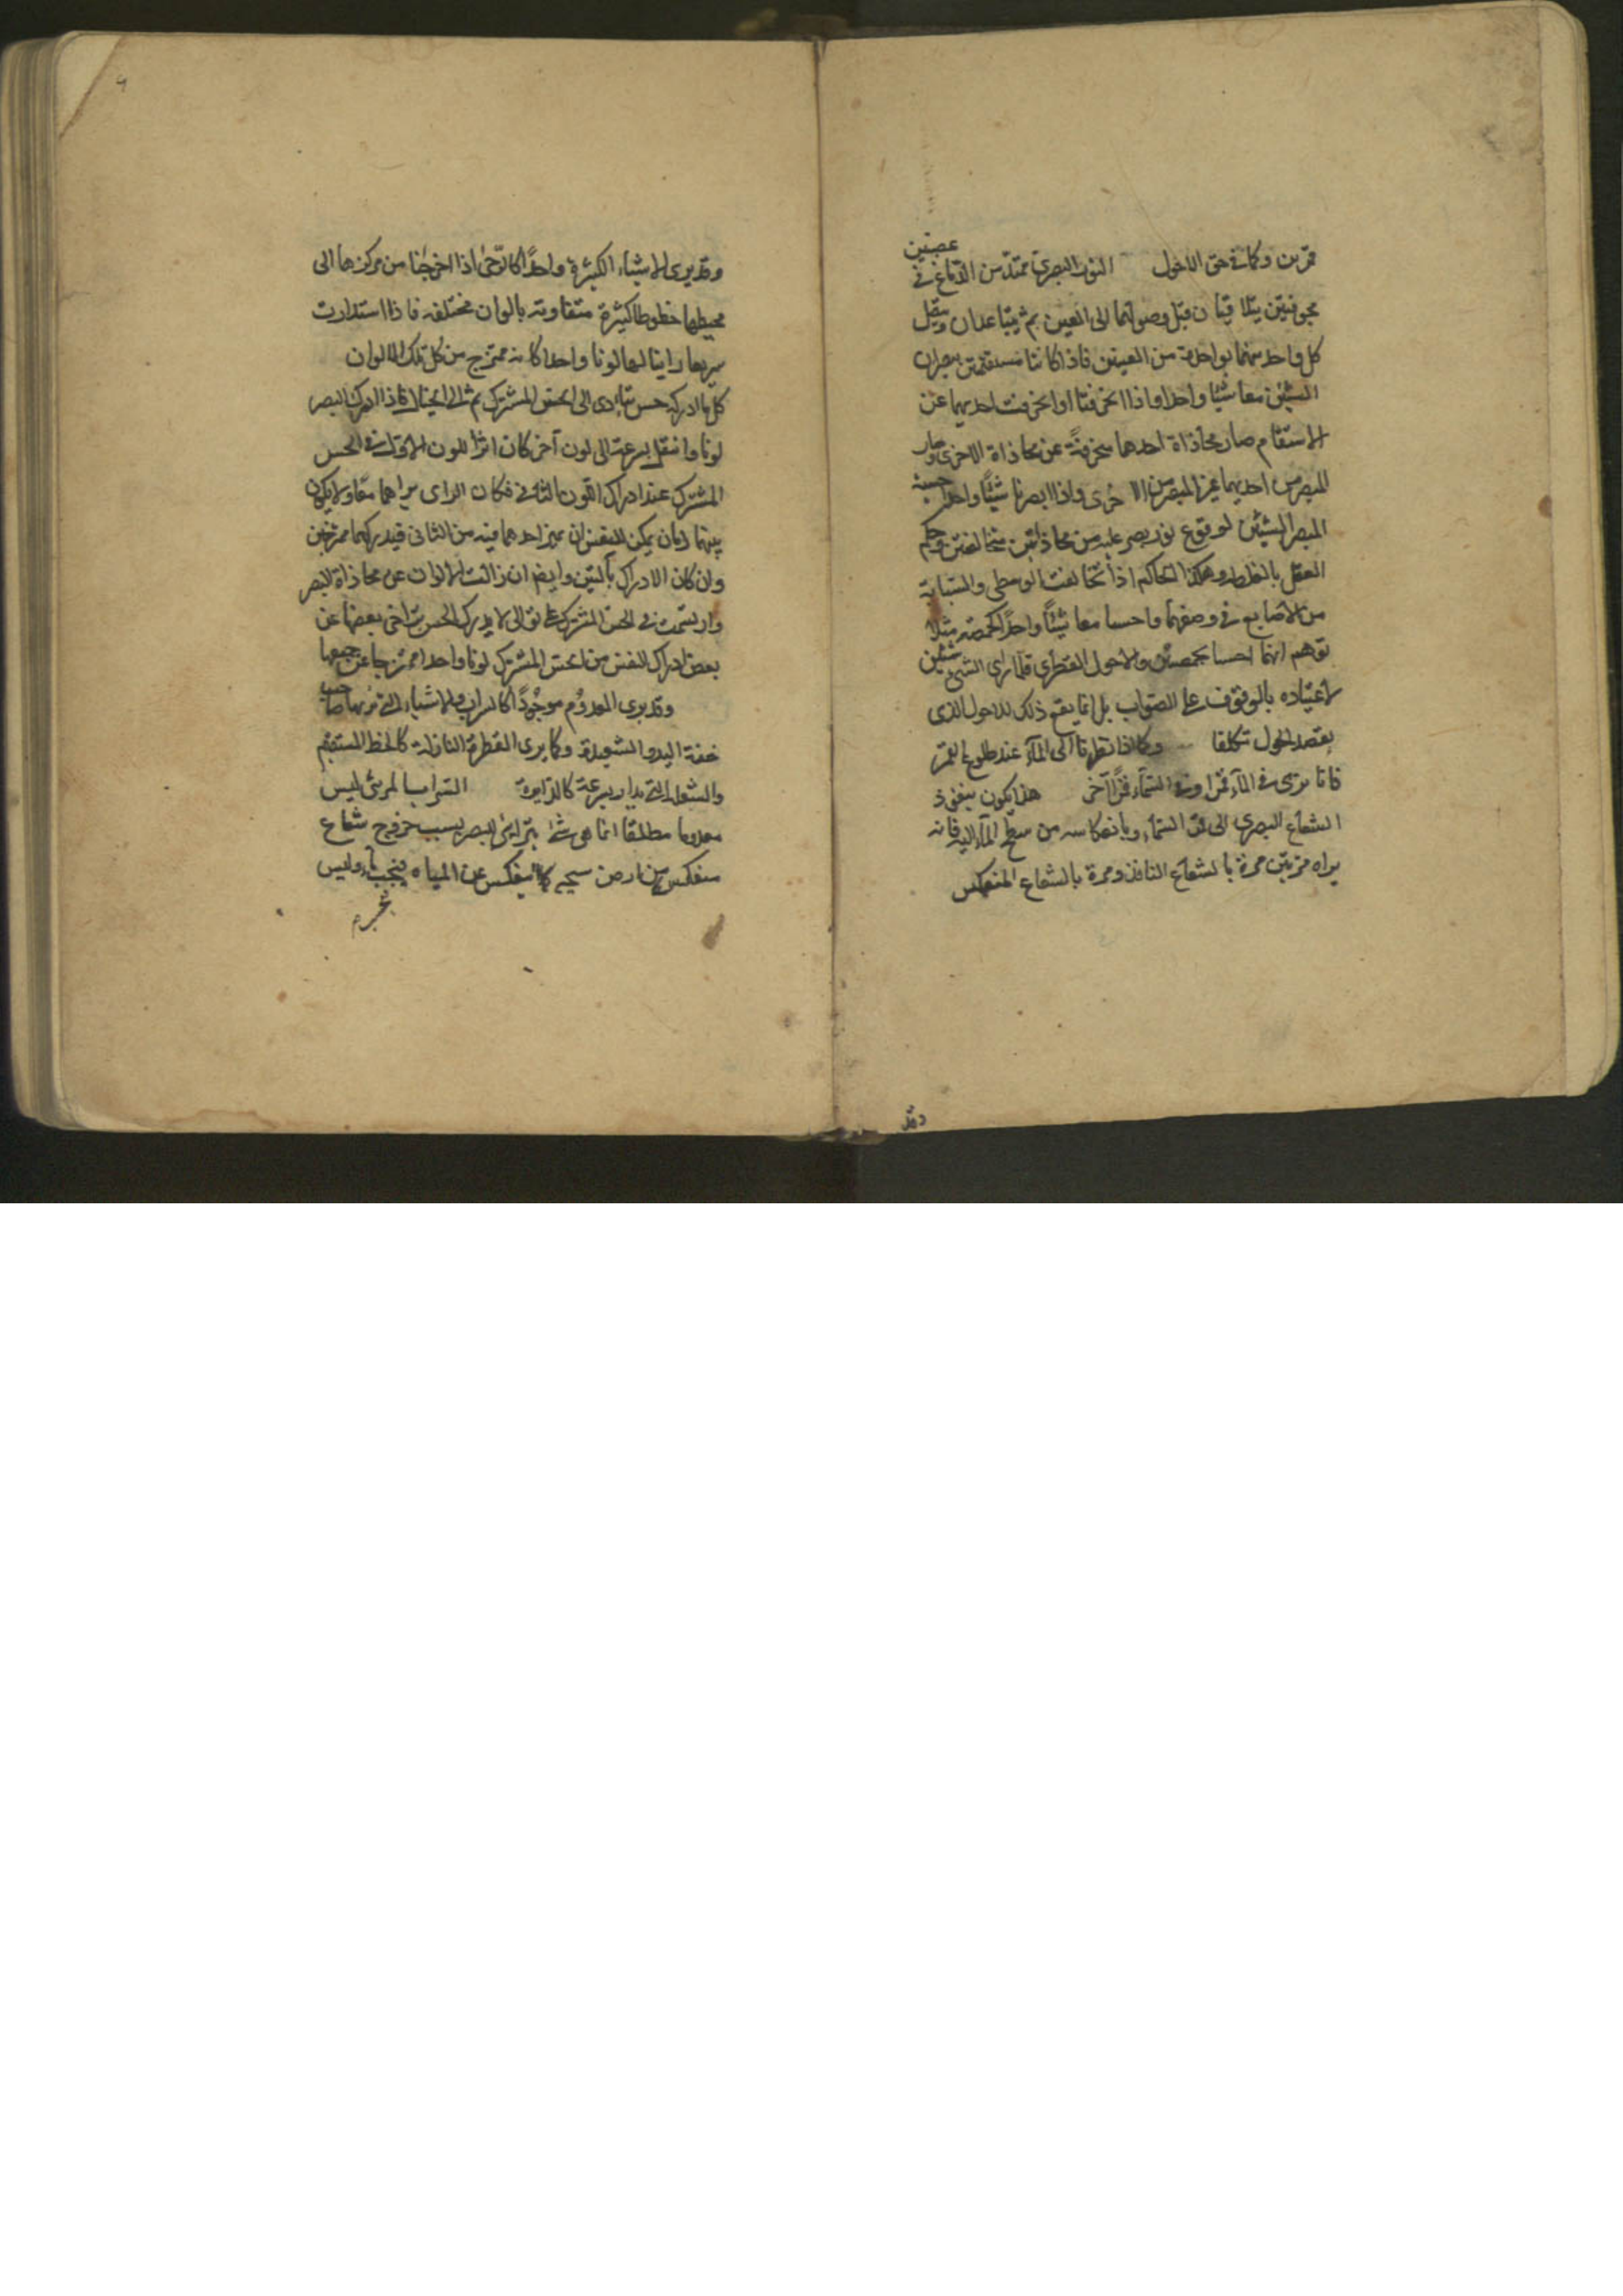 قمرين وكما في حق الاحول النور البصري ممتد من الدماغ في عصبتين
مجوفتين يتلاقيان قبل وصولهما الى العين ثم يتباعدان ويتصل
كل واحد منهما بواحدة من العينين فاذا كانتا مستقيمتين يبصران
الشيئ معا شيئا واحدا واذا انحرفتا او انحرفت احديهما عن
الاستقامة صار محاذاة احدهما منحرفة عن محاذاة الاخرى وصار
المبصر من احديهما غير المبصر من الاخرى واذا ابصرنا شيئا واحدا حسبه
المبصر الشيئين لوقوع نور بصر عليه من محاذاتين متخالفتين وحكم
العقل بالغلط وهكذا الحاكم اذا تخالفت الوسطى والسبابة
من الاصابع في وضعهما واحسا معا شيئا واحدا كالحمصة مثلا
توهم انهما احسا بحمصتين والاحول الفطري قلما يرى الشئ شيئين
لاعتياده بالوقوف على الصواب بل انما يقع ذلك للاحول الذي
يقصد الحول تكلفا وكما اذا نظرنا الى الماء عند طلوع القمر
فانا نرى في الماء قمرا وفي السماء قمرا آخر هذا يكون بنفوذ
الشعاع البصري الى قمر السماء وبانعكاسه من سطح الماء اليه فانه
يراه مرتين مرة بالشعاع النافذ ومرة بالشعاع المنعكس
وقد
وقد يرى الاشياء الكثيرة واحدا كالرحى اذا اخرجنا من مركزها الى
محيطها خطوطا كثيرة متقاوته بالوان مختلفه فاذا استدارت
سريعا راينا لها لونا واحدا كانه ممتزج من كل تلك الالوان
كل ما ادركه حس يتادى الى الحس المشترك ثم الى الخيال فاذا ادرك البصر
لونا وانتقل بسرعة الى لون آخر كان اثر اللون الاول في الحس
المشترك عند ادراك اللون الثاني فكان الرائ يراهما معا ولا يكون
بينهما زمان يمكن للنفس ان تميز احدهما فيه من الثاني فيدركهما ممتزجين
وان كان الادراك بآلتين وايضا ان زالت الالوان عن محاذاة البصر
وارتسمت في الحس المشترك على توالى لا يدرك الحس تراخى بعضها عن
بعض ادرك النفس من الحس المشترك لونا واحدا ممتزجا عن جميعها
وقد يرى المعدوم موجودا كالسراب والاشياء التي يريها صاحب
خفة اليد والشعبدة وكما يرى القطرة النازلة كالخط المستقيم
والشعلة التي يدار بسرعة كالدايرة السراب المرئى ليس
معدوما مطلقا انما هو شئ يترائى للبصر بسبب خروج شعاع
منعكس من ارض سبخه كما ينعكس عن المياه فيحسب ماء وليس